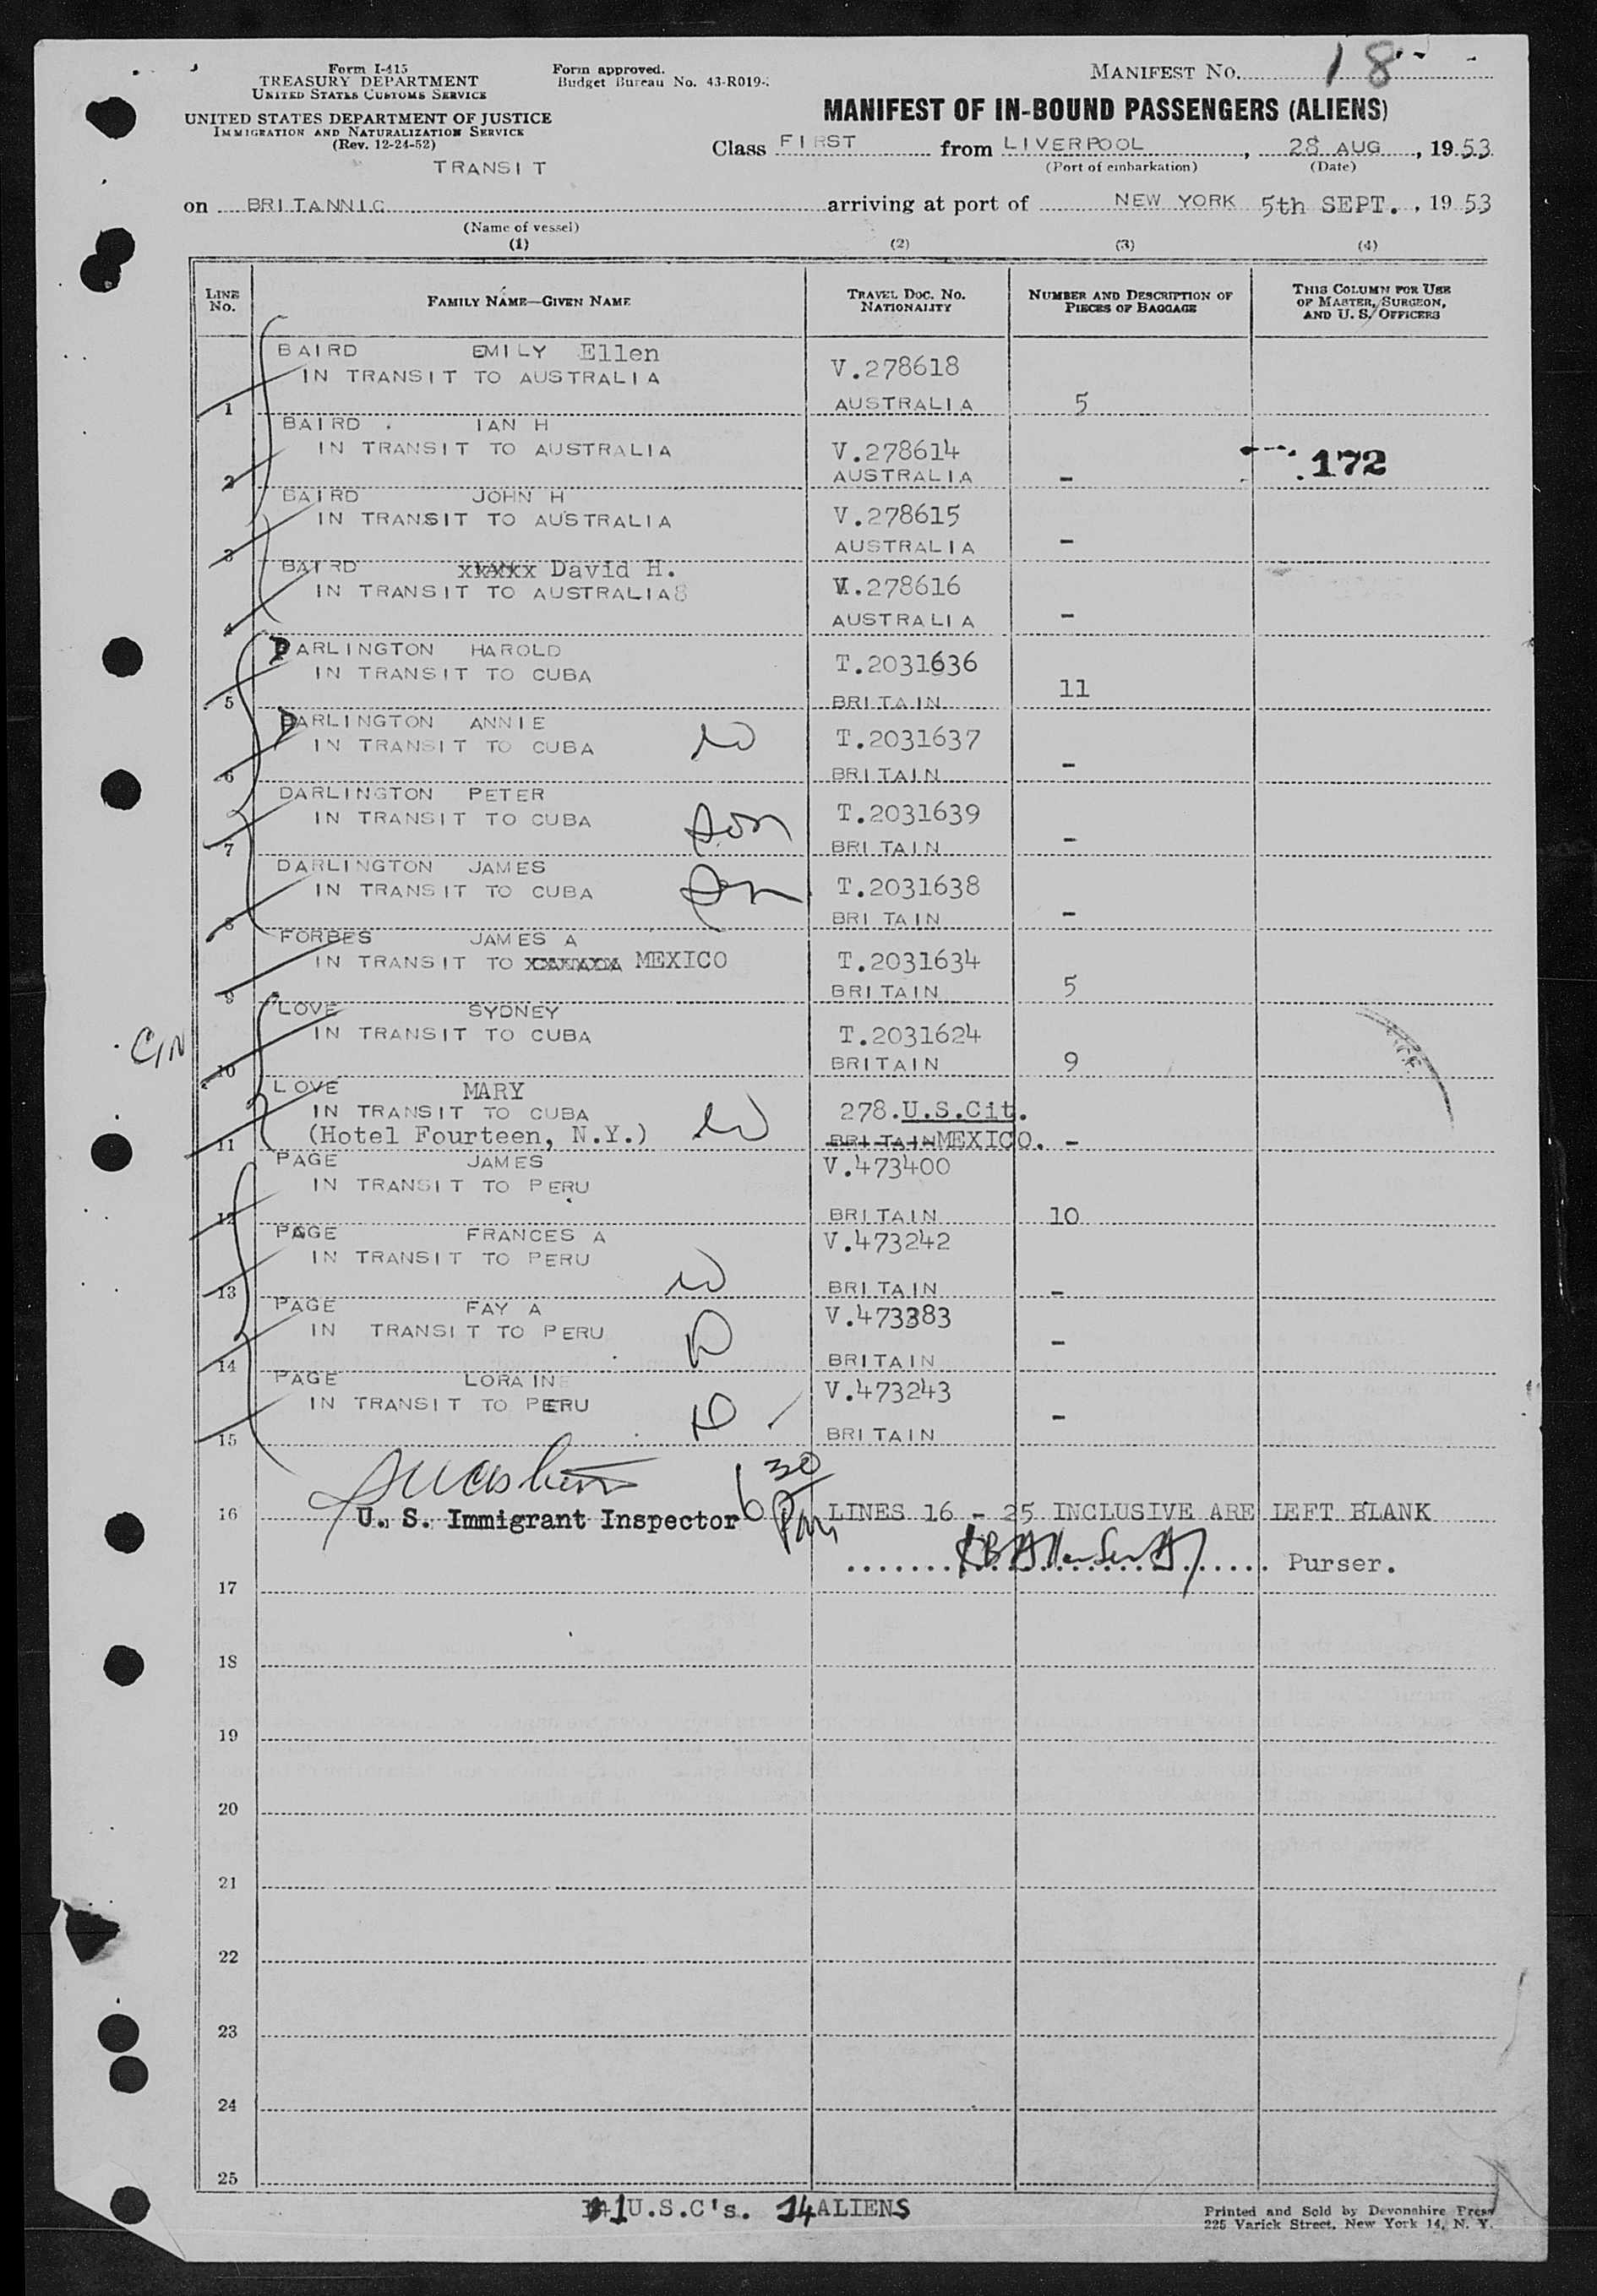 Form I-415
TREASURY DEPARTMENT
UNITED STATES CUSTOMS SERVICE
UNITED STATES DEPARTMENT OF JUSTICE
IMMIGRATION AND NATURALIZATION SERVICE
(Rev. 12-24-52)
TRANSIT
Form approved.
Budget Bureau No. 43-R019-
MANIFEST NO. 18
MANIFEST OF IN-BOUND PASSENGERS (ALIENS)
Class FIRST from LIVERPOOL, 28 AUG, 1953
(Port of embarkation) (Date)
on BRITANNIC arriving at port of NEW YORK 5th SEPT., 1953
(Name of vessel)
(1) (2) (3) (4)
LINE NO. FAMILY NAME—GIVEN NAME TRAVEL DOC. NO. NATIONALITY NUMBER AND DESCRIPTION OF PIECES OF BAGGAGE THIS COLUMN FOR USE OF MASTER, SURGEON, AND U. S. OFFICERS
BAIRD EMILY Ellen V.278618
IN TRANSIT TO AUSTRALIA
1 AUSTRALIA 5
BAIRD IAN H V.278614
IN TRANSIT TO AUSTRALIA 172
2 AUSTRALIA -
BAIRD JOHN H V.278615
IN TRANSIT TO AUSTRALIA
3 AUSTRALIA -
BAIRD xxxxx David H. V.278616
IN TRANSIT TO AUSTRALIA8
4 AUSTRALIA -
DARLINGTON HAROLD T.2031636
IN TRANSIT TO CUBA
5 BRITAIN 11
DARLINGTON ANNIE T.2031637
IN TRANSIT TO CUBA W
6 BRITAIN -
DARLINGTON PETER T.2031639
IN TRANSIT TO CUBA Son
7 BRITAIN -
DARLINGTON JAMES T.2031638
IN TRANSIT TO CUBA Son
8 BRITAIN -
FORBES JAMES A T.2031634
IN TRANSIT TO xxxxxxx MEXICO
9 BRITAIN 5
LOVE SYDNEY T.2031624
IN TRANSIT TO CUBA
C/N
10 BRITAIN 9
LOVE MARY 278.U.S.Cit.
IN TRANSIT TO CUBA W
11 (Hotel Fourteen, N.Y.) BRITAIN MEXICO. -
PAGE JAMES V.473400
IN TRANSIT TO PERU
12 BRITAIN 10
PAGE FRANCES A V.473242
IN TRANSIT TO PERU W
13 BRITAIN -
PAGE FAY A V.473383
IN TRANSIT TO PERU D
14 BRITAIN -
PAGE LORAINE V.473243
IN TRANSIT TO PERU D
15 BRITAIN -
6 30 PM
16 U. S. Immigrant Inspector LINES 16 - 25 INCLUSIVE ARE LEFT BLANK
Purser.
17
18
19
20
21
22
23
24
25
1 U.S.C's. 14 ALIENS
Printed and Sold by Devonshire Press
225 Varick Street, New York 14, N. Y.